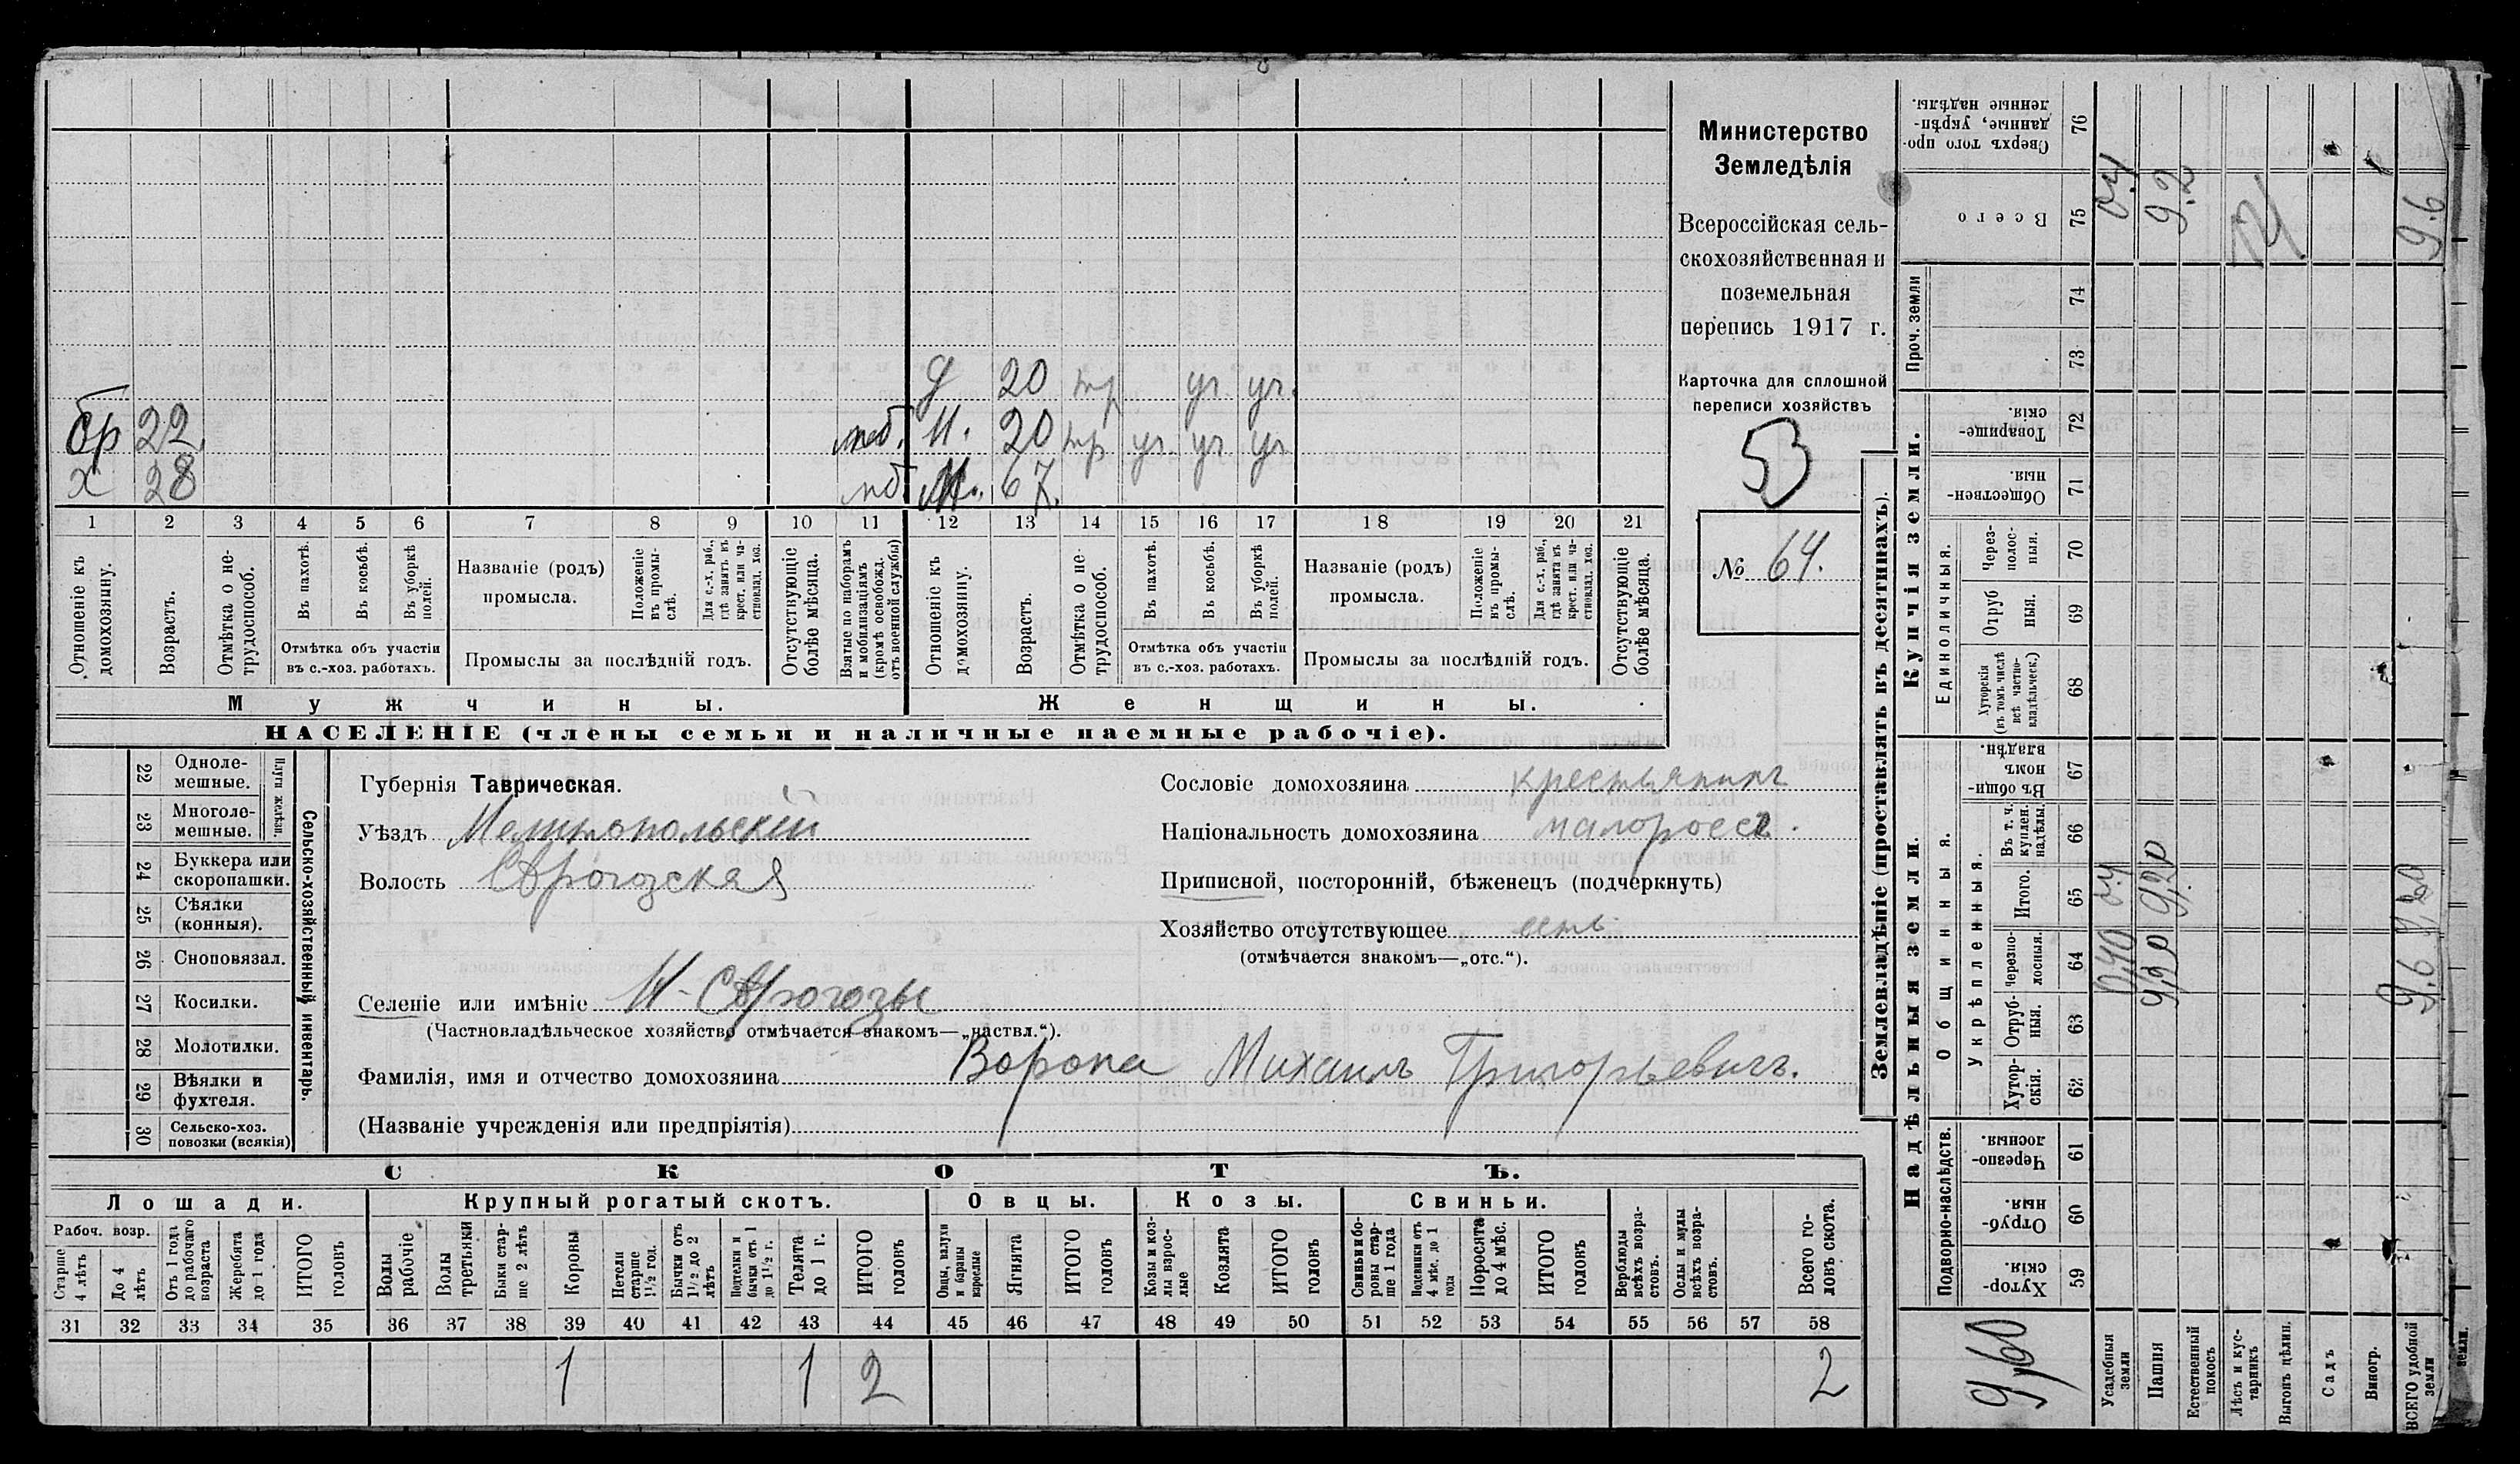 бр 22 мб.
х 28 мб
д 20 тр уч. уч.
н. 20 тр уч. уч. уч
м. 67.
1 2 3 4 5 6 7 8 9 10 11 12 13 14 15 16 17 18 19 20 21
Отношеніе къ домохозяину.
Возрастъ.
Отмѣтка о не-трудоспособ.
Въ пахотѣ.
Въ косьбѣ.
Въ уборкѣ полей.
Отмѣтка объ участіи
въ с.-хоз. работахъ.
Названіе (родъ)
промысла.
Положеніе въ промы-слѣ.
Для с.-х. раб., гдѣ занятъ въ крест. или ча-стновлад. хоз.
Промыслы за послѣдній годъ.
Отсутствующіе болѣе мѣсяца.
Взятые по наборамъ и мобилизаціямъ (кромѣ освобожд. отъ военной службы)
Отношеніе къ домохозяину.
Возрастъ.
Отмѣтка о не-трудоспособ.
Въ пахотѣ.
Въ косьбѣ.
Въ уборкѣ полей.
Отмѣтка объ участіи
въ с.-хоз. работахъ.
Названіе (родъ)
промысла.
Положеніе въ промы-слѣ.
Для с.-х. раб., гдѣ занята въ крест. или ча-стновлад. хоз.
Промыслы за послѣдній годъ.
Отсутствующіе болѣе мѣсяца.
Мужчины.
Женщины.
НАСЕЛЕНІЕ (члены семьи и наличные наемные рабочіе).
Министерство
Земледѣлія
Всероссійская сель-
скохозяйственная и
поземельная
перепись 1917 г.
Карточка для сплошной
переписи хозяйствъ
53
№ 64.
22 Одноле-мешные.
23 Многоле-мешные.
Плуги желѣзн.
24 Буккера или скоропашки.
25 Сѣялки (конныя).
26 Сноповязал.
27 Косилки.
28 Молотилки.
29 Вѣялки и фухтеля.
30 Сельско-хоз. повозки (всякія)
Сельско-хозяйственный инвентарь.
Губернія Таврическая.
Уѣздъ Мелитопольскій
Волость
Селеніе или имѣніе
(Частновладѣльческое хозяйство отмѣчается знакомъ—„частвл.“).
Фамилія, имя и отчество домохозяина Ворона Михаилъ Григорьевичъ.
(Названіе учрежденія или предпріятія)
Сословіе домохозяина крестьянинъ
Національность домохозяина малороссъ.
Приписной, посторонній, бѣженецъ (подчеркнуть)
Хозяйство отсутствующее есть
(отмѣчается знакомъ—„отс.“).
СКОТЪ.
Лошади. Крупный рогатый скотъ. Овцы. Козы. Свиньи.
Рабоч. возр.
Старше 4 лѣтъ
До 4 лѣтъ
Отъ 1 года до рабочаго возраста
Жеребята до 1 года
ИТОГО головъ
Волы рабочіе
Волы третьяки
Быки стар-ше 2 лѣтъ
Коровы
Нетели старше 1½ год.
Бычки отъ 1½ до 2 лѣтъ
Подтелки и бычки отъ 1 до 1½ г.
Телята до 1 г.
ИТОГО головъ
Овцы, валухи и бараны взрослые
Ягнята
ИТОГО головъ
Козы и коз-лы взрос-лые
Козлята
ИТОГО головъ
Свиньи и бо-ровы стар-ше 1 года
Подсвинки отъ 4 мѣс. до 1 года
Поросята до 4 мѣс.
ИТОГО головъ
Верблюды всѣхъ возра-стовъ.
Ослы и мулы всѣхъ возра-стовъ.
Всего го-ловъ скота.
31 32 33 34 35 36 37 38 39 40 41 42 43 44 45 46 47 48 49 50 51 52 53 54 55 56 57 58
1 1 2 2
Землевладѣніе (проставлять въ десятинахъ).
Надѣльныя земли.
Купчія земли.
Проч. земли
Подворно-наслѣдств.
Общинныя.
Укрѣпленныя.
Единоличныя.
Хутор-скія. 59
Отруб-ныя 60
Черезпо-лосныя. 61
Хутор-скія. 62
Отруб-ныя. 63
Черезпо-лосныя. 64
Итого. 65
Въ т. ч. куплен. надѣлы. 66
Въ общи-номъ владѣн. 67
Хуторскія (въ томъ числѣ всѣ частно-владѣльческ.) 68
Отруб ныя. 69
Через-полос-ныя. 70
Обществен-ныя 71
Товарище-скія. 72
73
74
Всего 75
Сверхъ того про-данные, укрѣп-ленные надѣлы. 76
9,60
Усадебныя земли 0,40 0.4 0.4
Пашня 9,20 9,20 9.2
Естественный покосъ
Лѣсъ и кус-тарникъ
Выгонъ цѣлин.
Садъ
Виногр.
ВСЕГО удобной земли 9.6 9.6
земли.